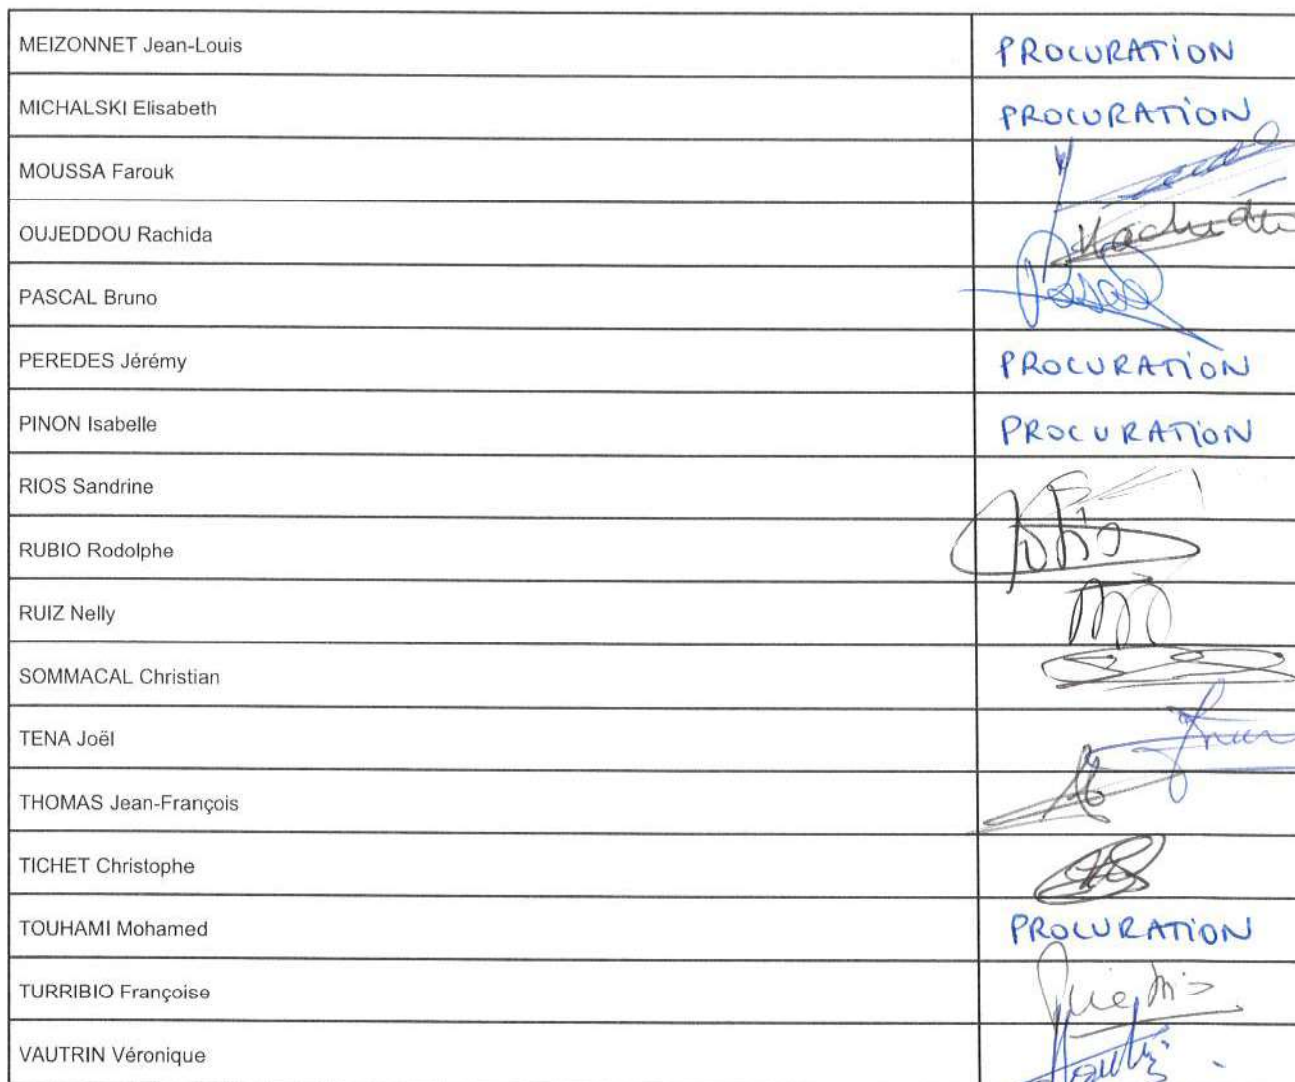 MEIZONNET Jean-Louis PROCURATION
MICHALSKI Elisabeth PROCURATION
MOUSSA Farouk
OUJEDDOU Rachida Rachida
PASCAL Bruno Pascal
PEREDES Jérémy PROCURATION
PINON Isabelle PROCURATION
RIOS Sandrine
RUBIO Rodolphe
RUIZ Nelly
SOMMACAL Christian
TENA Joël
THOMAS Jean-François
TICHET Christophe
TOUHAMI Mohamed PROCURATION
TURRIBIO Françoise
VAUTRIN Véronique